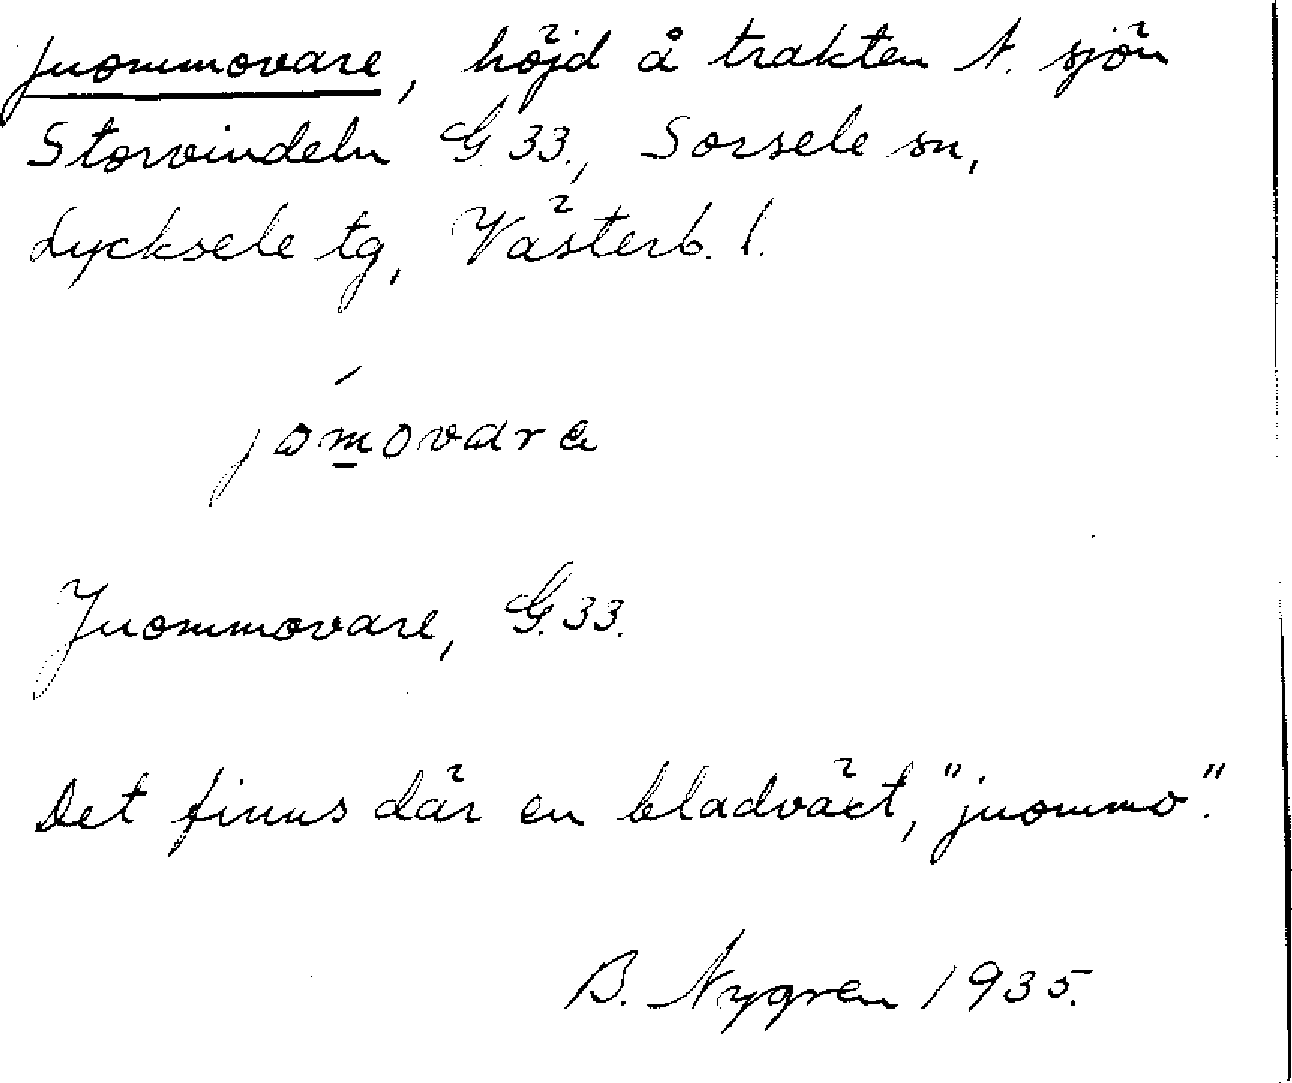 Juommovare, höjd å trakten N. sjön
Storvindeln G 33., Sorsele sn,
Lycksele tg, Västerb. l.
jómovara
Juommovare, G. 33.
Det finns där en bladväxt, "juommo".
B. Nygren 1935.